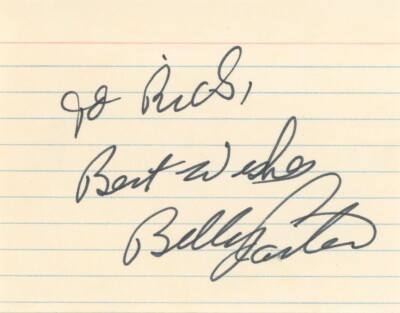 To Rick,
Best Wishes
Billy Carter